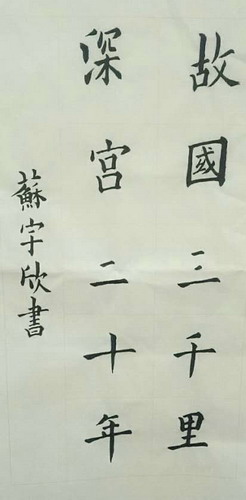 故國三千里
深宮二十年
蘇宇欣書